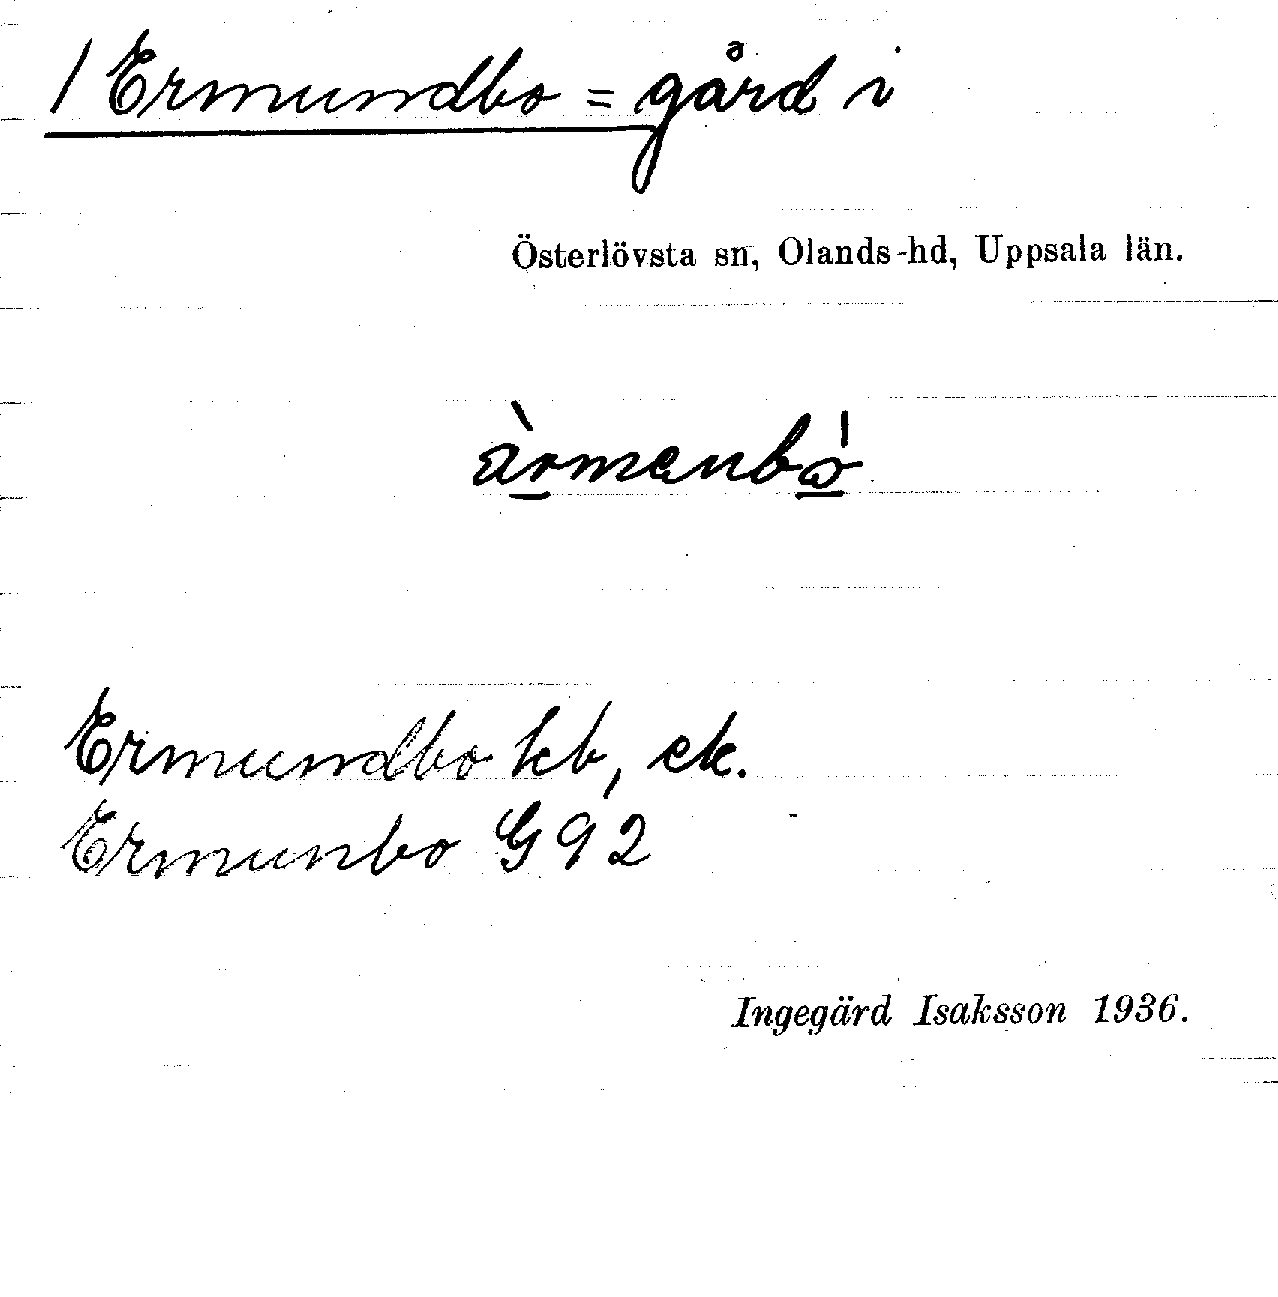 / Ermundbo = gård i
Österlövsta sn, Olands-hd, Uppsala län.
àrmenbó
Ermundbo kb, ek.
Ermunbo G 92
Ingegärd Isaksson 1936.